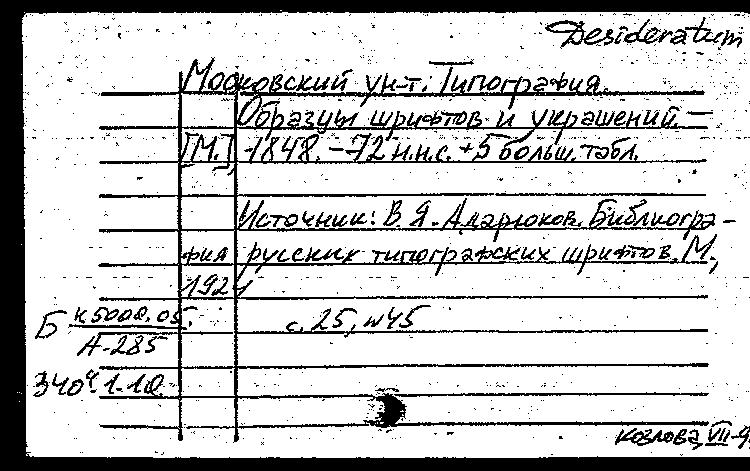 Desideratum
Московский ун-т. Типография.
Образцы шрифтов и украшений. —
[М.], 1848. — 72 н.н.с. + 5 больш. табл.
Источник: В. Я. Адарюков. Библиогра-
фия русских типографских шрифтов. М.,
1924
Б к5000.05. с. 25, №45
А-285
1.10
Козлова, VII-9